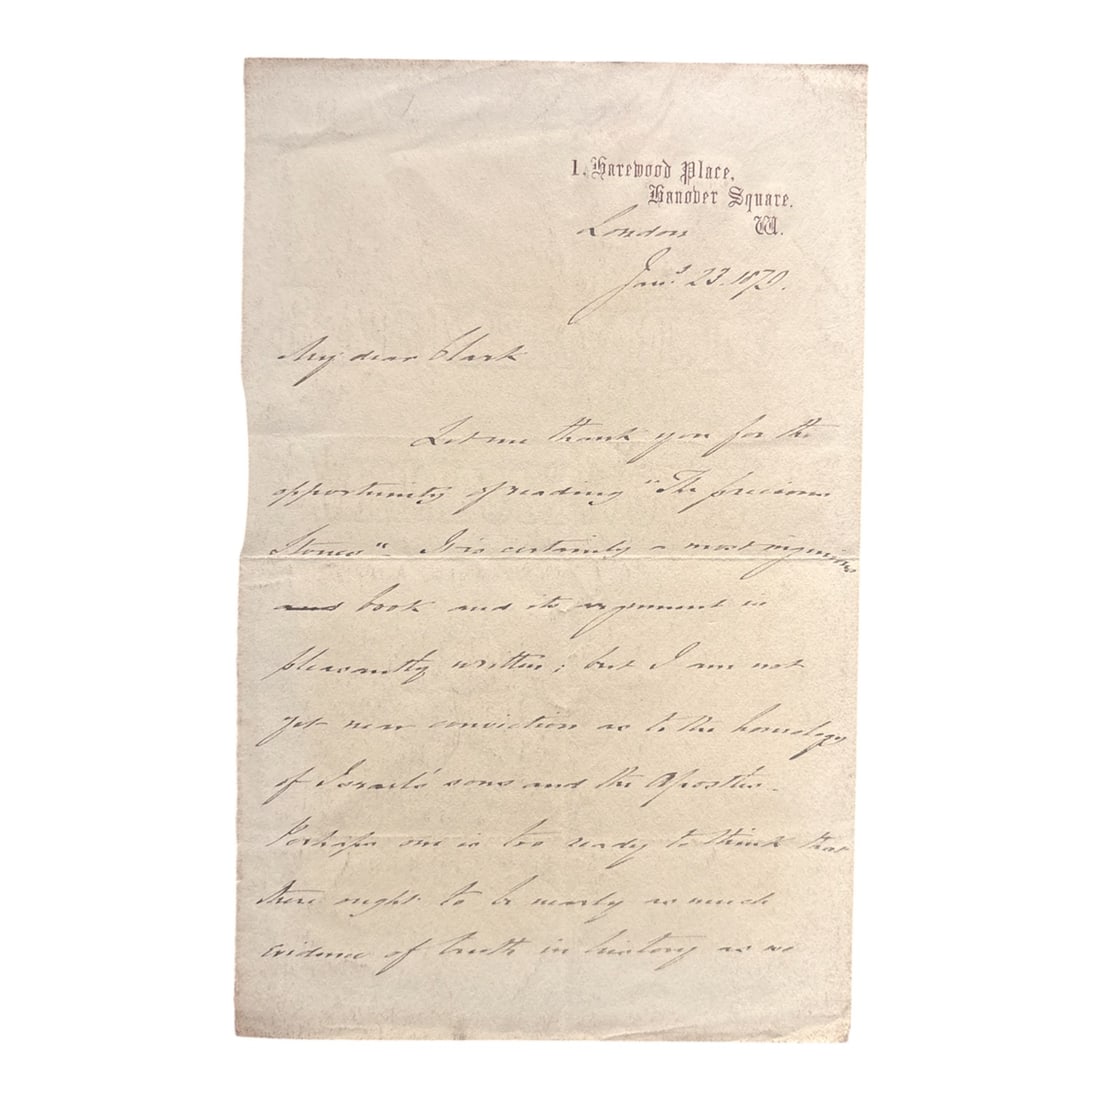 1. Harewood Place,
Hanover Square.
W.
London
Jany 23. 1879.
My dear Clark
Let me thank you for the
opportunity of reading "The precious
Stones". It is certainly a most ingenious
book and its argument is
pleasantly written; but I am not
yet near conviction as to the homology
of Israel's sons and the Apostles.
Perhaps one is too ready to think that
there ought to be nearly as much
evidence of truth in history as we